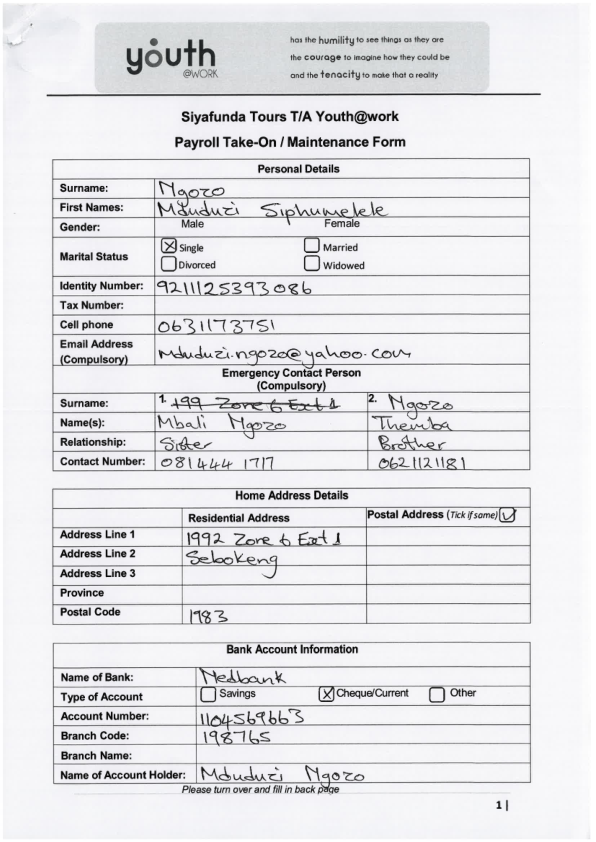 youth
@WORK
has the humility to see things as they are
the courage to imagine how they could be
and the tenacity to make that a reality
Siyafunda Tours T/A Youth@work
Payroll Take-On / Maintenance Form
Personal Details
Surname: Ngozo
First Names: Mduduzi Siphumelele
Gender: Male Female
Marital Status
Single Married
Divorced Widowed
Identity Number: 9211125393086
Tax Number:
Cell phone 0631173751
Email Address
(Compulsory) mduduzi.ngozo@yahoo.com
Emergency Contact Person
(Compulsory)
Surname: 1. 199 Zone 6 Ext 1 2. Ngozo
Name(s): Mbali Ngozo Themba
Relationship: Sister Brother
Contact Number: 081444 1717 0621121181
Home Address Details
Residential Address Postal Address (Tick if same)
Address Line 1 1992 Zone 6 Ext 1
Address Line 2 Sebokeng
Address Line 3
Province
Postal Code 1983
Bank Account Information
Name of Bank: Nedbank
Type of Account Savings Cheque/Current Other
Account Number: 1104569663
Branch Code: 198765
Branch Name:
Name of Account Holder: Mduduzi Ngozo
Please turn over and fill in back page
1 |